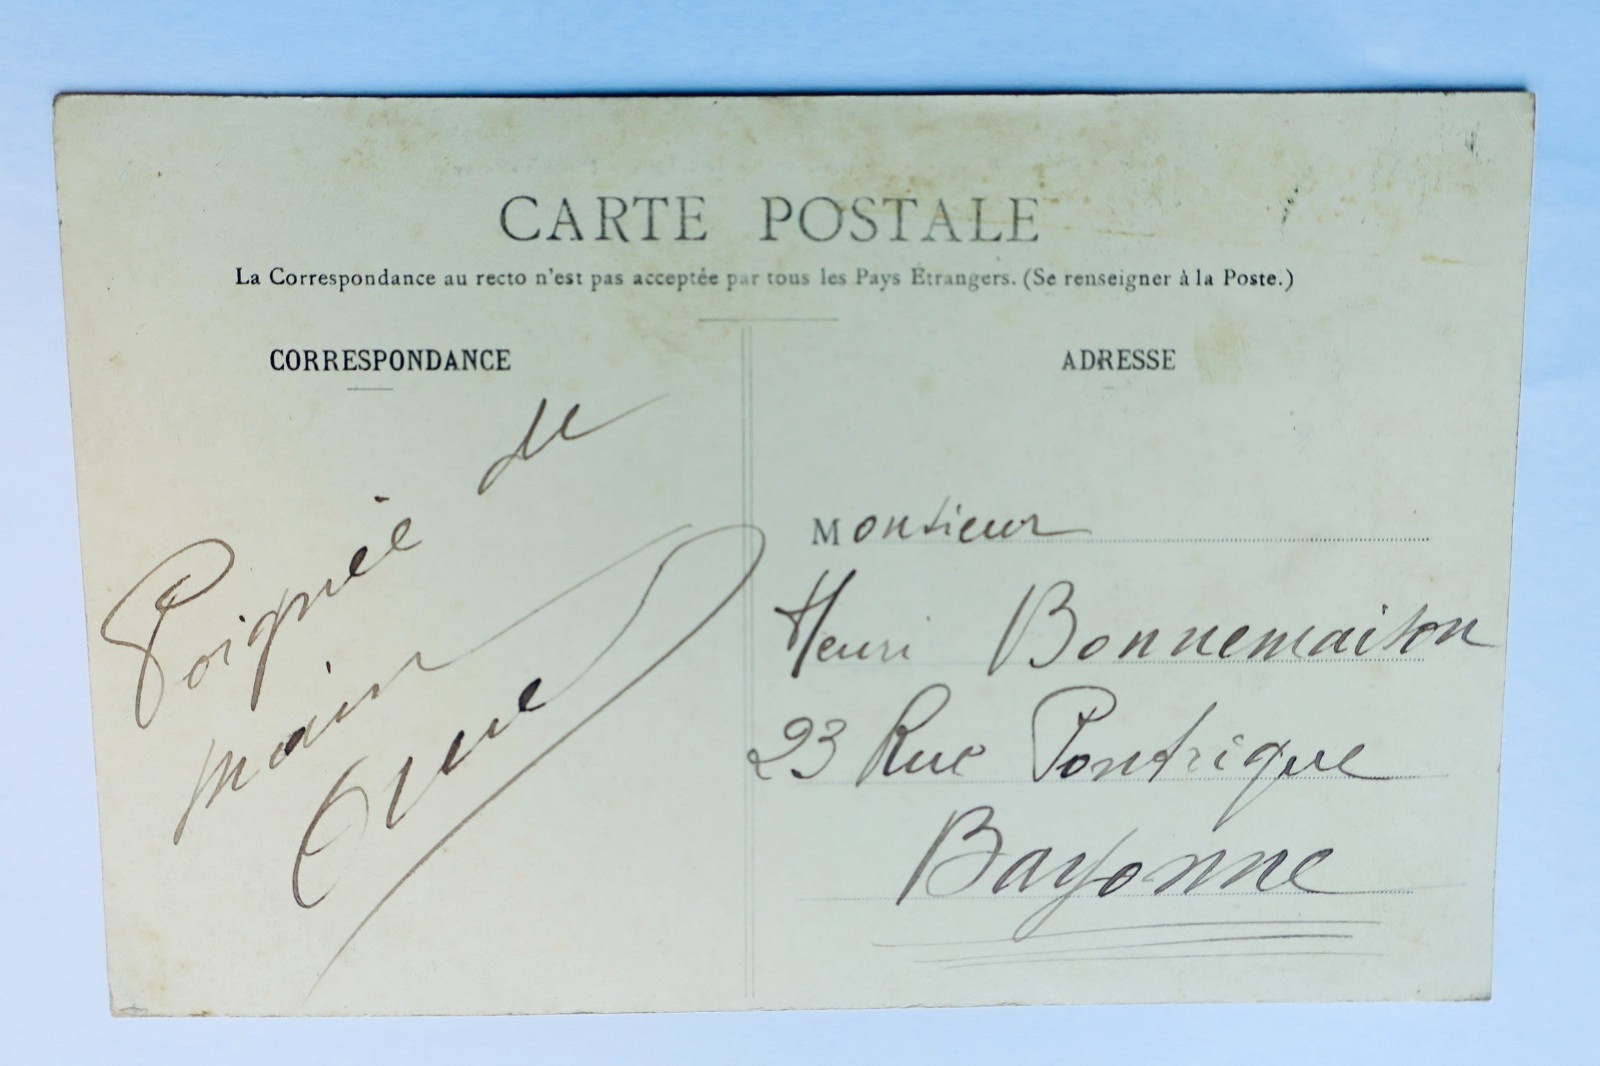 CARTE POSTALE
La Correspondance au recto n'est pas acceptée par tous les Pays Étrangers. (Se renseigner à la Poste.)
CORRESPONDANCE
Poignée de
main
ADRESSE
Monsieur
Henri Bonnemaison
23 Rue Pontrique
Bayonne